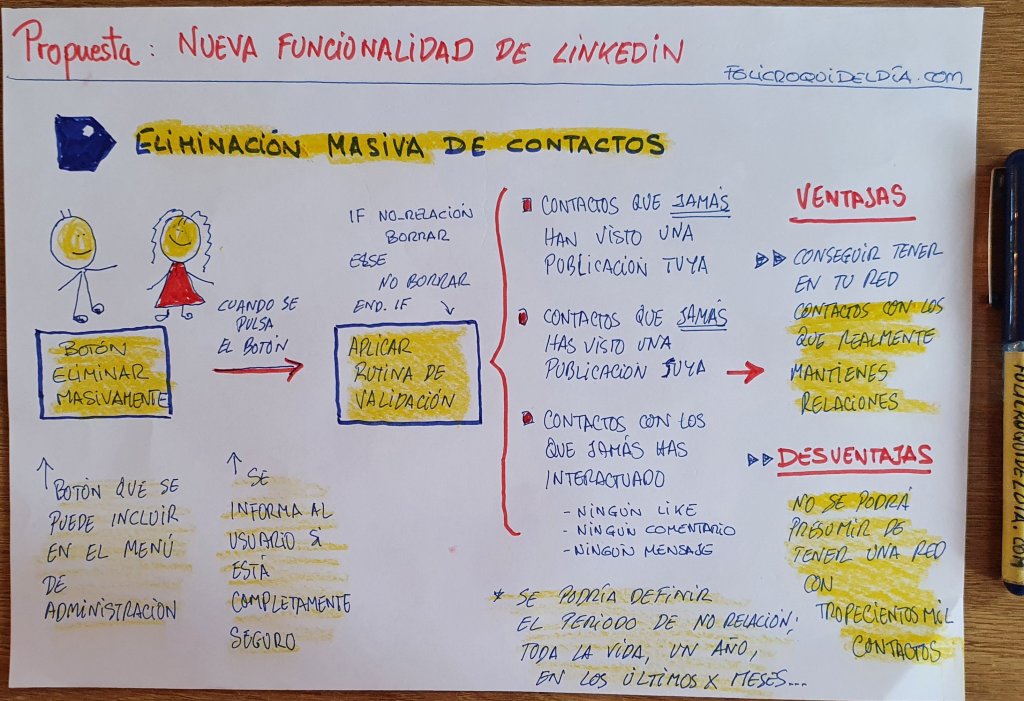 Propuesta: NUEVA FUNCIONALIDAD DE LINKEDIN
FOLICROQUIDELDÍA.COM
ELIMINACIÓN MASIVA DE CONTACTOS
BOTÓN
ELIMINAR
MASIVAMENTE
CUANDO SE
PULSA
EL BOTÓN
IF NO_RELACIÓN
BORRAR
ELSE
NO BORRAR
END. IF
APLICAR
RUTINA DE
VALIDACIÓN
CONTACTOS QUE JAMÁS
HAN VISTO UNA
PUBLICACION TUYA
CONTACTOS QUE JAMÁS
HAS VISTO UNA
PUBLICACION SUYA
CONTACTOS CON LOS
QUE JAMÁS HAS
INTERACTUADO
- NINGÚN LIKE
- NINGÚN COMENTARIO
- NINGÚN MENSAJE
VENTAJAS
CONSEGUIR TENER
EN TU RED
CONTACTOS CON LOS
QUE REALMENTE
MANTIENES
RELACIONES
DESVENTAJAS
NO SE PODRÁ
PRESUMIR DE
TENER UNA RED
CON
TROPECIENTOS MIL
CONTACTOS
BOTÓN QUE SE
PUEDE INCLUIR
EN EL MENÚ
DE
ADMINISTRACIÓN
SE
INFORMA AL
USUARIO SI
ESTÁ
COMPLETAMENTE
SEGURO
* SE PODRÍA DEFINIR
EL PERIODO DE NO RELACIÓN;
TODA LA VIDA, UN AÑO,
EN LOS ÚLTIMOS X MESES...
FOLICROQUIDELDIA.COM